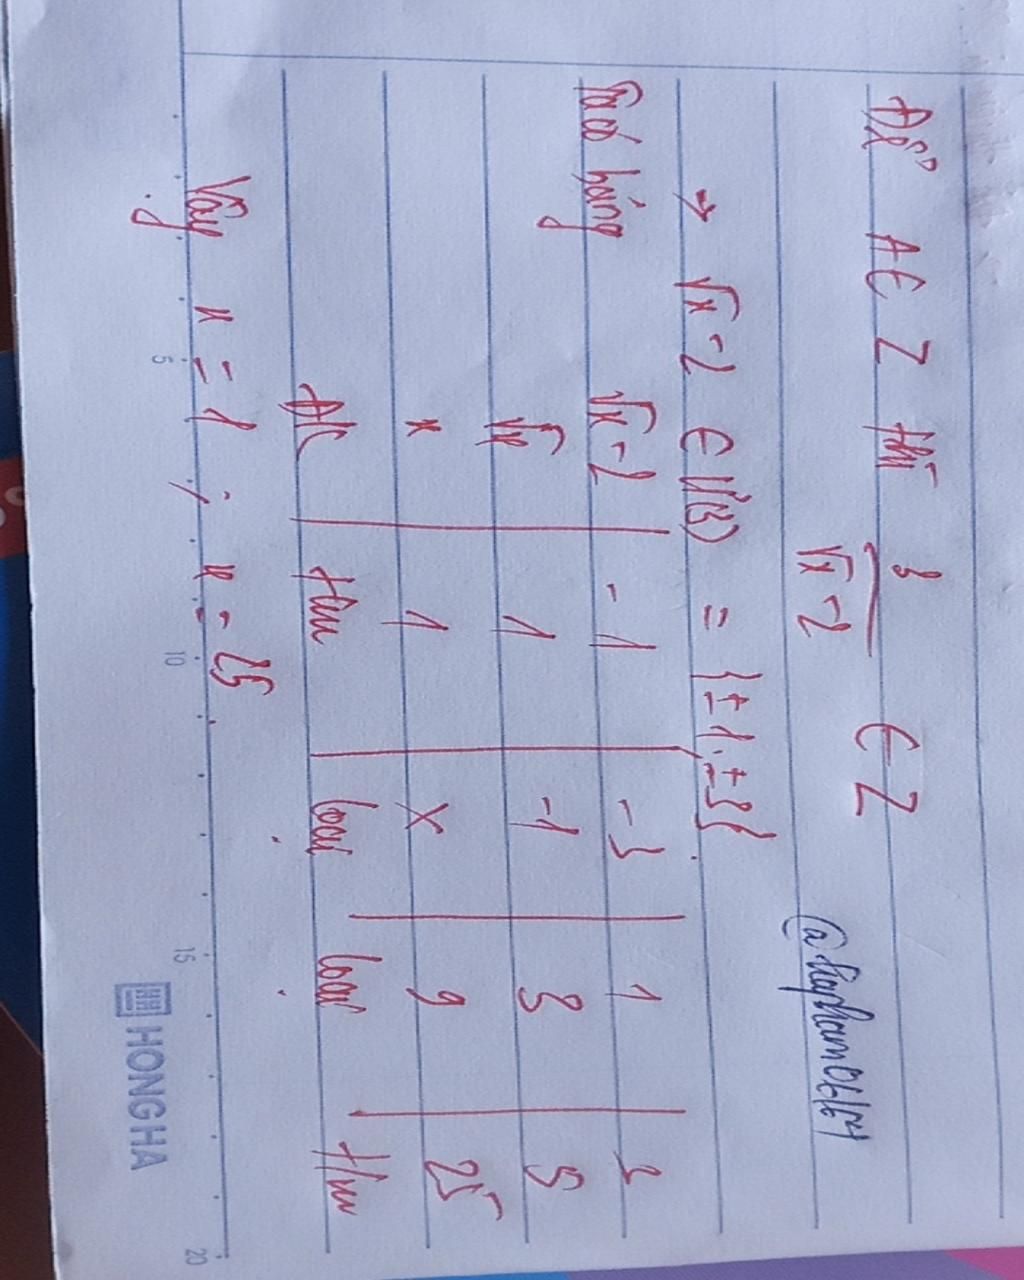 Để A ∈ Z thì 3/(√x - 2) ∈ Z
@haphan06/64
→ √x - 2 ∈ Ư(3) = {±1, ±3}
Ta có bảng √x - 2 | -1 | -3 | 1 | 3
√x | 1 | -1 | 3 | 5
x | 1 | X | 9 | 25
ĐK | t/m | loại | loại | t/m
Vậy x = 1 ; x = 25
5 10 15 20
HONGHA